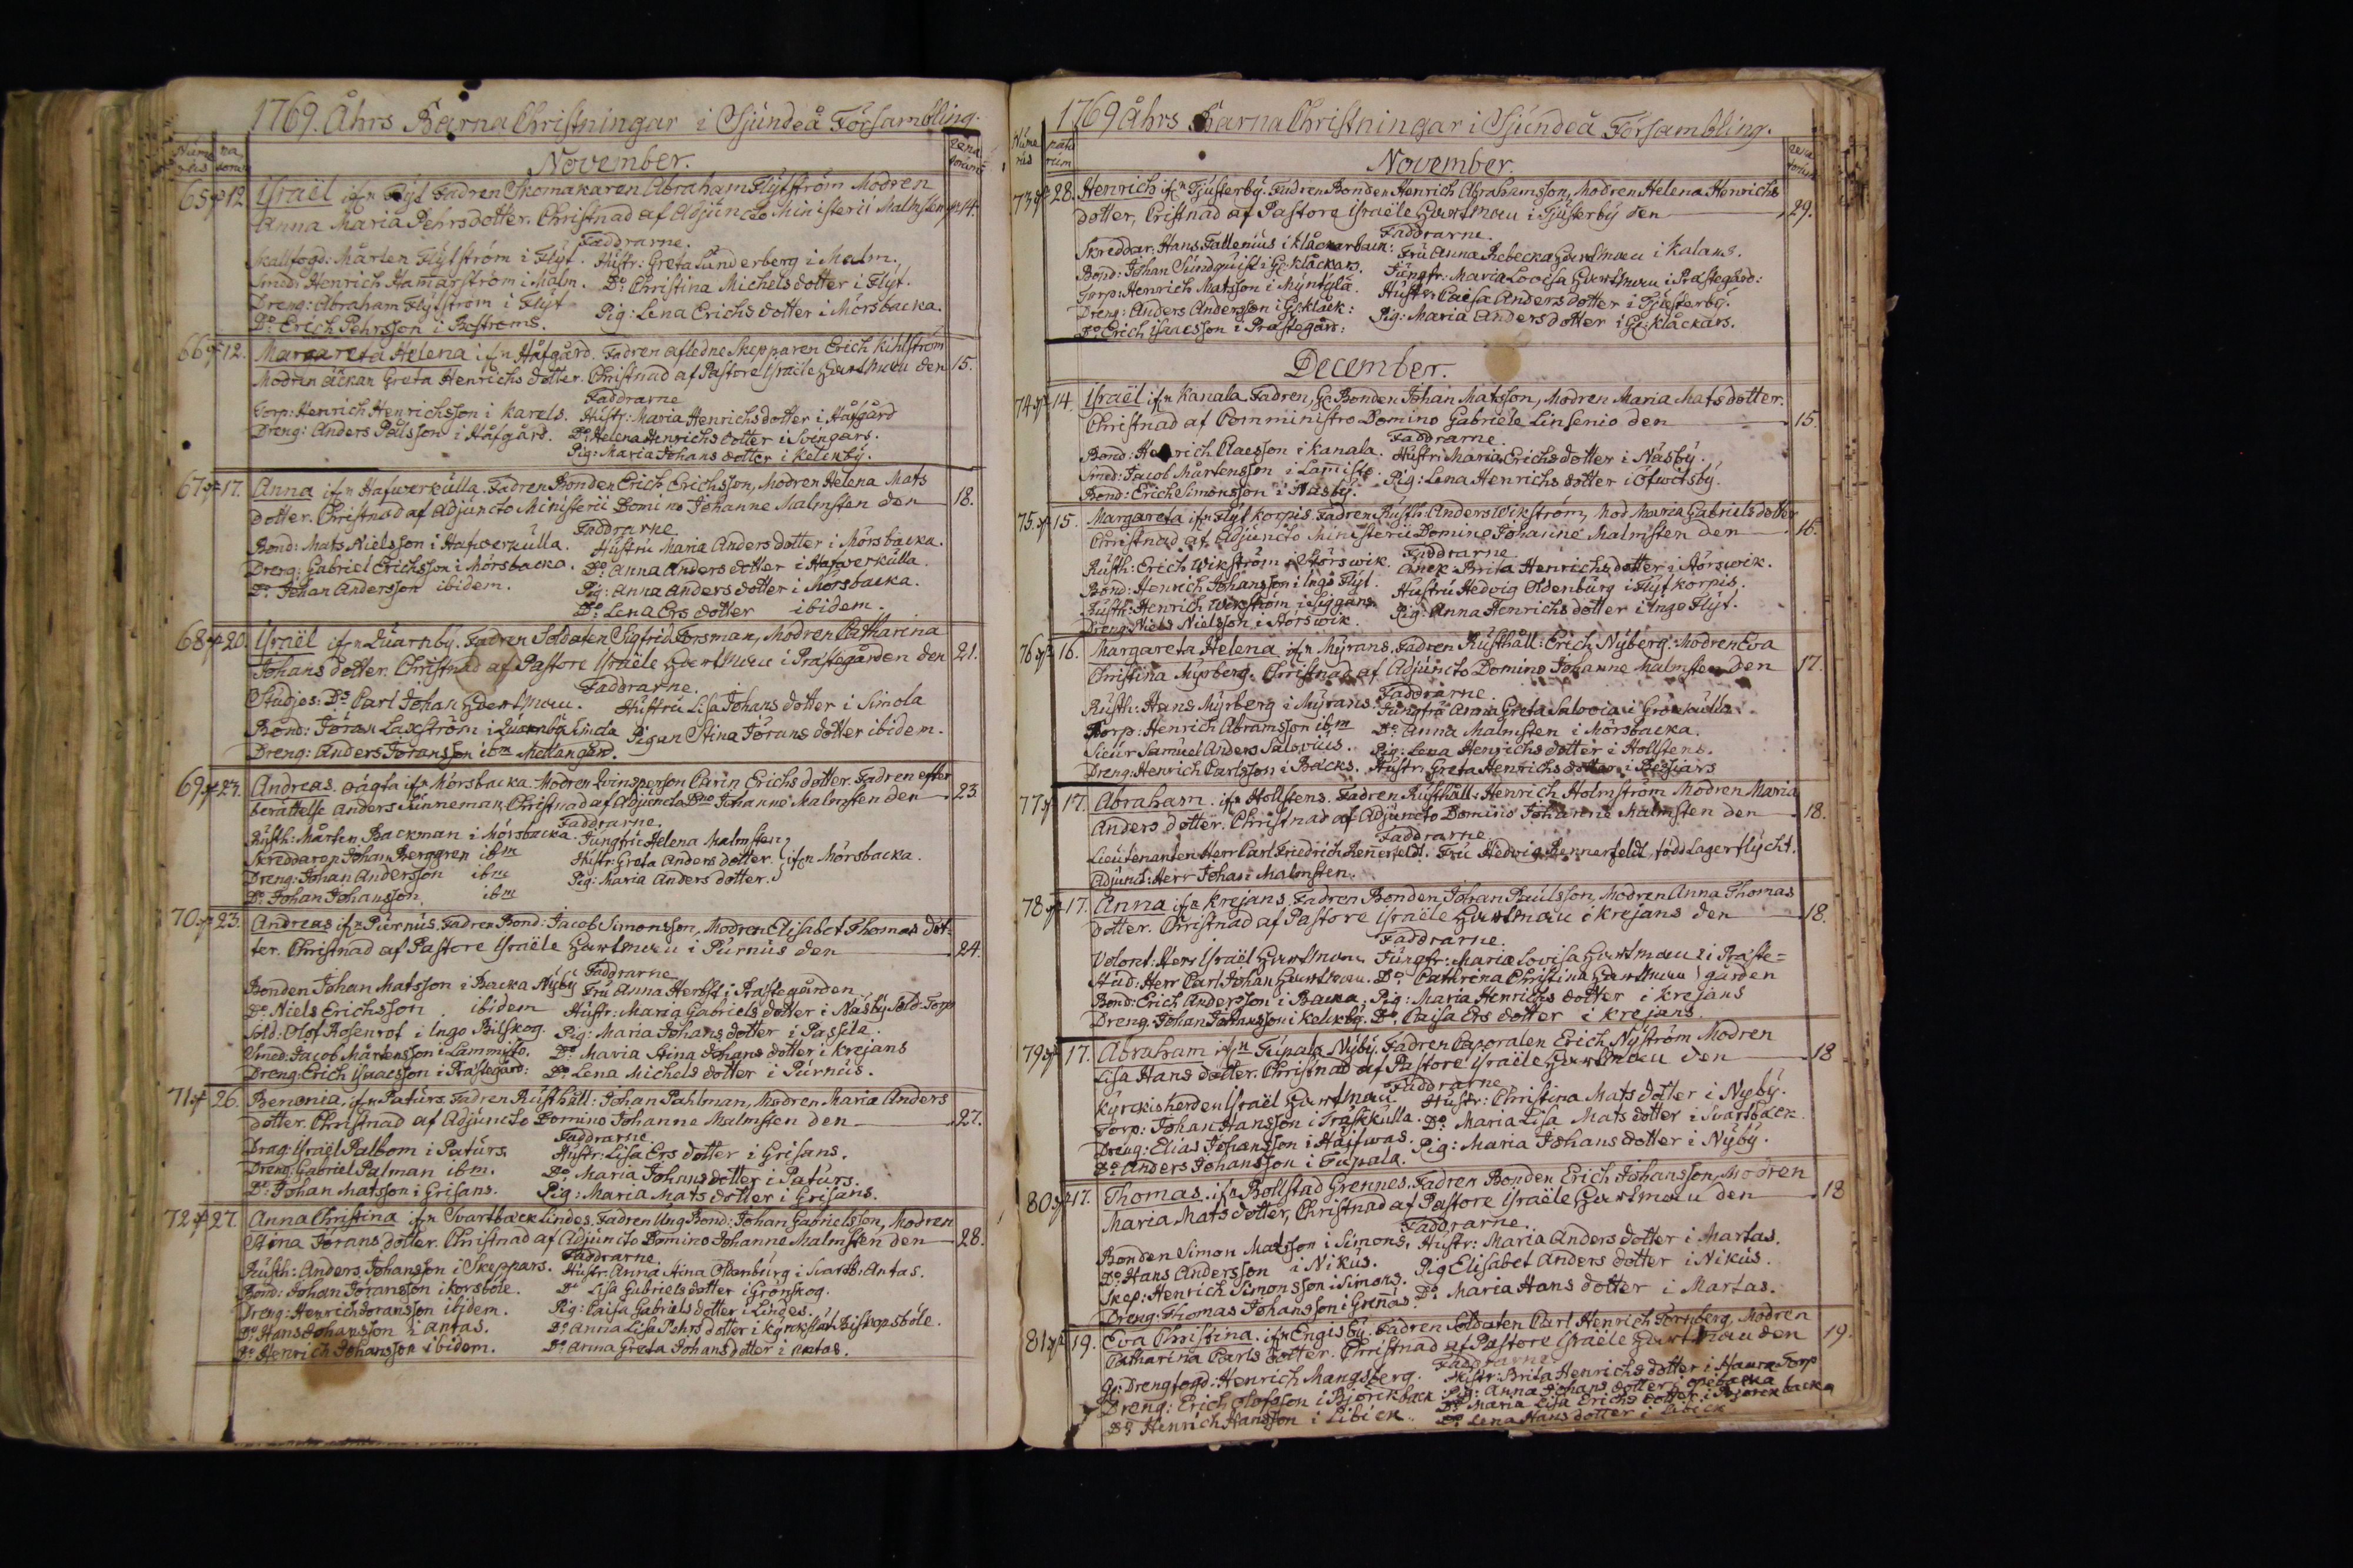 1769. Åhrs Barna Christningar i Sjundeå Försambling.
November.
65 12 Israël ifrn Flyt Fadren Skomakaren Abraham Flytström Modren
Anna Maria Pehrs dotter. Christnad af Adjuncto Ministerii Malmsten 14.
Faddrarne.
Skallfogd: Mårten Flytström i Flyt. Hustr: Greta Sunderberg i Malm.
Smed: Henrich Hamarström i Malm. Do: Christina Michels dotter i Flyt.
Dreng: Abraham Flytström i Flyt Pig: Lena Erichs dotter i Mörsbacka.
Do Erich Pehrsson i Boströms.
66 12. Margareta Helena ifrn Håfgård. Fadren afledne Skepparen Erich Kihlström
Modren Enkan Greta Henrichs dotter. Christnad af Pastore Israële Hartman den 15.
Faddrarne
Torp: Henrich Henrichsson i Karels. Hustr: Maria Henrichs dotter i Håfgård
Dreng: Anders Pålsson i Håfgård. Do Helena Henrichs dotter i Svingars.
Pig: Maria Johans dotter i Kelckby.
67 17. Anna ifrn Hafwerkulla. Fadren Bonden Erich Erichsson, Modren Helena Mats
dotter. Christnad af Adjuncto Ministerii Domino Johanne Malmsten den 18.
Faddrarne
Bond: Mats Nielsson i Hafwerkulla. Hustru Maria Anders dotter i Mörsbacka.
Dreng: Gabriel Erichsson i Mörsbacka. Do: Anna Anders dotter i Hafwerkulla.
Do Johan Andersson ibidem. Pig: Anna Anders dotter i Mörsbacka.
Do Lena Ers dotter ibidem.
68 20. Israël ifrn Quarnby. Fadren Soldaten Sigfrid Forsman, Modren Catharina
Johans dotter. Christnad af Pastore Israële Hartman i Prästegården den 21.
Faddrarne.
Studios: Do Carl Johan Hartman. Hustru Lisa Johans dotter i Simola
Bond: Jöran Laxström i Quarnby Simola Pigan Stina Jörans dotter ibidem.
Dreng: Anders Joransson ibm Mellangård.
69 23. Andreas oägta ifrn Mörsbacka. Modren Qvinsperson Carin Erichs dotter. Fadren efter
berättelse Anders Sunneman, Christnad af Adjuncto Dno Johanne Malmsten den 23.
Faddrarne.
Rusth: Mårten Backman i Mörsbacka. Jungfru Helena Malmsten
Skreddaren Johan Berggren ibm Hustr: Greta Anders dotter. ifrn Mörsbacka.
Dreng: Johan Andersson ibm Pig: Maria Anders dotter.
Do Johan Johansson. ibm
70 23. Andreas ifrn Purnus. Fadren Bond: Jacob Simonsson, Modren Elisabet Thomas dot-
ter. Christnad af Pastore Israële Hartman i Purnus den 24.
Faddrarne
Bonden Johan Matsson i Backa Nyby Fru Anna Herbst i Prästegården
Do Niels Erichsson ibidem Hustr: Maria Gabriels dotter i Näsby Sold-Torp
Sold: Olof Rosenrot i Ingo Bilskog. Pig: Maria Johans dotter i Passila.
Smed: Jacob Mårtensson i Lammisto. Do Maria Stina Johans dotter i Krejans
Dreng: Erich Isaacsson i Prästegård: Do Lena Michels dotter i Purnus.
71 26. Benonia, ifrn Paturs. Fadren Rusthåll: Johan Pahlman, Modren Maria Anders
dotter. Christnad af Adjuncto Domino Johanne Malmsten den 27.
Faddrarne.
Drag: Israël Palbom i Paturs. Hustr: Lisa Ers dotter i Grisans.
Dreng: Gabriel Palman ibm. Do Maria Johans dotter i Paturs.
Do: Johan Matsson i Grisans. Pig: Maria Mats dotter i Grisans.
72 27. Anna Christina ifrn Svartback Lindes. Fadren Ung Bond: Johan Gabrielsson, Modren
Stina Jörans dotter. Christnad af Adjuncto Domino Johanne Malmsten den 28.
Faddrarne
Rusth: Anders Johansson i Skeppars. Hustr: Anna Stina Oldenburg i Svartb: Antas.
Bond: Johan Joransson i Korsbole. Do Lisa Gabriels dotter i Grönskog.
Dreng: Henrich Joransson ibidem. Pig: Caisa Gabriels dotter i Lindes.
Do Hans Johansson i Antas. Do Anna Lisa Pehrs dotter i Kyrckslät Biskopsböle.
Do Henrich Johansson ibidem. Do Anna Greta Johans dotter i Antas.
1769 Åhrs Barna Christningar i Sjundeå Försambling.
November.
73 28. Henrich ifrn Tjusterby. Fadren Bonden Henrich Abrahamsson, Modren Helena Henrichs
dotter, Cristnad af Pastore Israële Hartman i Tjusterby den 29.
Faddrarne.
Skreddar: Hans Fallenius i Klåckarback: Fru Anna Rebecka Hartman i Kalans.
Bond: Johan Sundquist i Gr: Klåckars. Jungfr: Maria Lovisa Hartman i Prästegård:
Torp: Henrich Matsson i Myntylä. Hustr: Caisa Anders dotter i Tjusterby.
Dreng: Anders Andersson i Gr: Klåck: Pig: Maria Anders dotter i Gr: Klåckars.
Do Erich Isaacsson i Prästegård:
December.
74 14. Israël ifrn Kanala Fadren, Bonden Johan Matsson, Modren Maria Mats dotter.
Christnad af Comministro Domino Gabriele Linsenio den 15.
Faddrarne.
Bond: Henrich Claesson i Kanala. Hustr: Maria Erichs dotter i Näsby.
Smed: Jacob Mårtensson i Lamisto. Pig: Lena Henrichs dotter i Ofwitsby.
Bond: Erich Simonsson i Näsby.
75. 15. Margareta ifrn Flyt korpis. Fadren Rusth: Anders Wikström, Mod Maria Gabriels dotter
Christnad af Adjuncto Ministerii Domino Johanne Malmsten den 16.
Faddrarne
Rusth: Erich Wikström i Störswik. Enck: Brita Henrichs dotter i Störswik.
Bond: Henrich Johansson i Ingo Flyt. Hustru Hedvig Oldenburg i Flyt korpis.
Rusth: Henrich Wikström i Siggans. Pig: Anna Henrichs dotter i Ingo Flyt.
Dreng: Niels Nielsson i Störswik.
76 16. Margareta Helena ifrn Myrans. Fadren Rusthåll: Erich Nyberg: Modren Eva
Christina Myrberg. Christnad af Adjuncto Domino Johanne Malmsten den 17.
Faddrarne.
Rusth: Hans Myrberg i Myrans. Jungfru Anna Greta Salovia i Grönkulla.
Torp: Henrich Abramsson ibm Do: Anna Malmsten i Mörsbacka.
Sieur Samuel Anders Salovius. Pig: Lena Henrichs dotter i Hollstens.
Dreng: Henrich Carlsson i Bäcks. Hustr: Greta Henrichs dotter i
77 17. Abraham. ifrn Hollstens. Fadren Rusthåll: Henrich Holmström Modren Maria
Anders dotter. Christnad af Adjuncto Domino Johanne Malmsten den 18.
Faddrarne
Lieutenanten Herr Carl Friedrich Rennerfeldt. Fru Hedvig Rennerfeldt, född Lagerflycht.
Adjunct: Herr Johan Malmsten.
78 17. Anna ifrn Krejans. Fadren Bonden Johan Paulsson, Modren Anna Thomas
dotter. Christnad af Pastore Israële Hartman i Krejans den 18.
Faddrarne.
Volont: Herr Israël Hartman Jungfr: Maria Lovisa Hartman i Präste-
Stud: Herr Carl Johan Hartman. Do Cathrina Christina Hartman gården
Bond: Erich Andersson i Backa. Pig: Maria Henrichs dotter i Krejans
Dreng: Johan Johansson i Kelckby. Do. Caisa Ers dotter i Krejans.
79 17. Abraham ifrn Tupala Nyby. Fadren Caporalen Erich Nyström Modren
Lisa Hans dotter. Christnad af Pastore Israële Hartman den 18
Faddrarne
Kyrckisherden Israël Hartman. Hustr: Christina Mats dotter i Nyby.
Torp: Johan Hansson i Träskkulla. Do Maria Lisa Mats dotter i Svartback.
Dreng: Elias Johansson i Haifwas. Pig: Maria Johans dotter i Nyby.
Do Anders Johansson i Tupala.
80 17. Thomas. ifrn Bollstad Grennes. Fadren Bonden Erich Johansson, Modren
Maria Mats dotter, Christnad af Pastore Israële Hartman den 18
Faddrarne.
Bonden Simon Matsson i Simons. Hustr: Maria Anders dotter i Martas.
Do: Hans Andersson i Nikus. Pig Elisabet Anders dotter i Nikus.
Skep: Henrich Simonsson i Simons. Do Maria Hans dotter i Martas.
Dreng: Thomas Johansson i Grennäs.
81 19. Eva Christina. ifrn Engisby. Fadren Soldaten Carl Henrich Törnberg, Modren
Catharina Carls dotter. Christnad af Pastore Israële Hartman den 19.
Faddrarne
Gr: Drengfogd: Henrich Mangsberg. Hustr: Brita Henrichs dotter i Torp
Dreng: Erich Olofsson i Björckback Pig: Anna Johans dotter i
Do Henrich Hansson i Libick. Do Maria Lisa Erichs dotter i Björckbacka
Do Lena Hans dotter i Libick